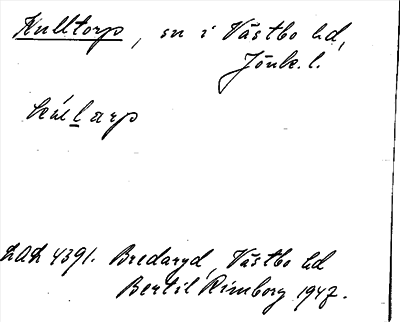 Kulltorp, sn i Västbo hd,
Jönk. l.
kúllarp
LAL 4391. Bredaryd, Västbo hd
Bertil Rimborg 1947.